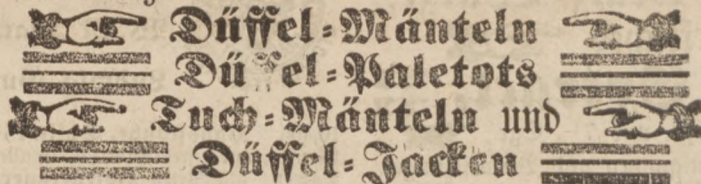 Düffel-Mänteln
Düffel-Paletots
Tuch-Mänteln und
Düffel-Jacken